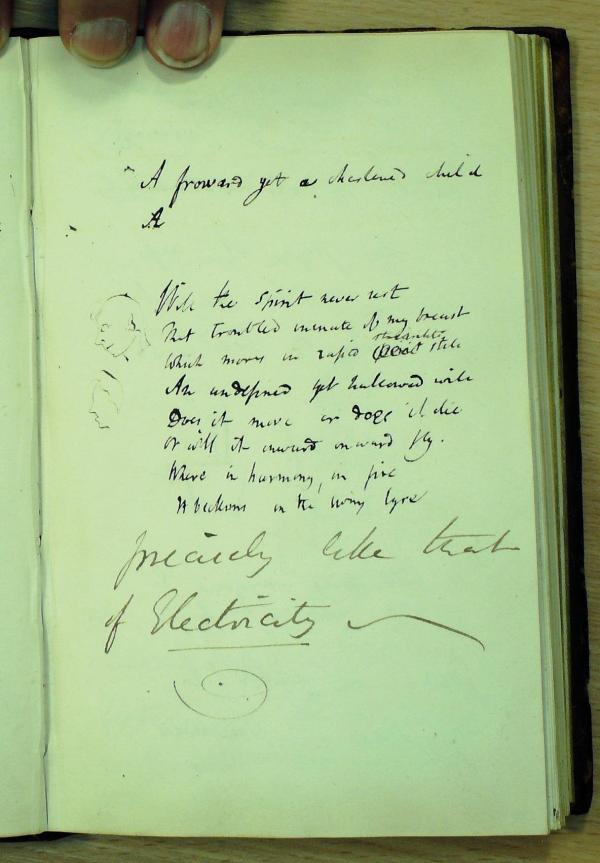 A froward yet a chastened child
A
Will the spirit never rest
That troubled inmate of my breast
Which moves in rapid still
An undefined yet hallowed will
Does it move or dogs it die
Or will it onward onward fly.
Where in harmony, in fire
It beckons in the living lyre
precisely like that
of Electricity